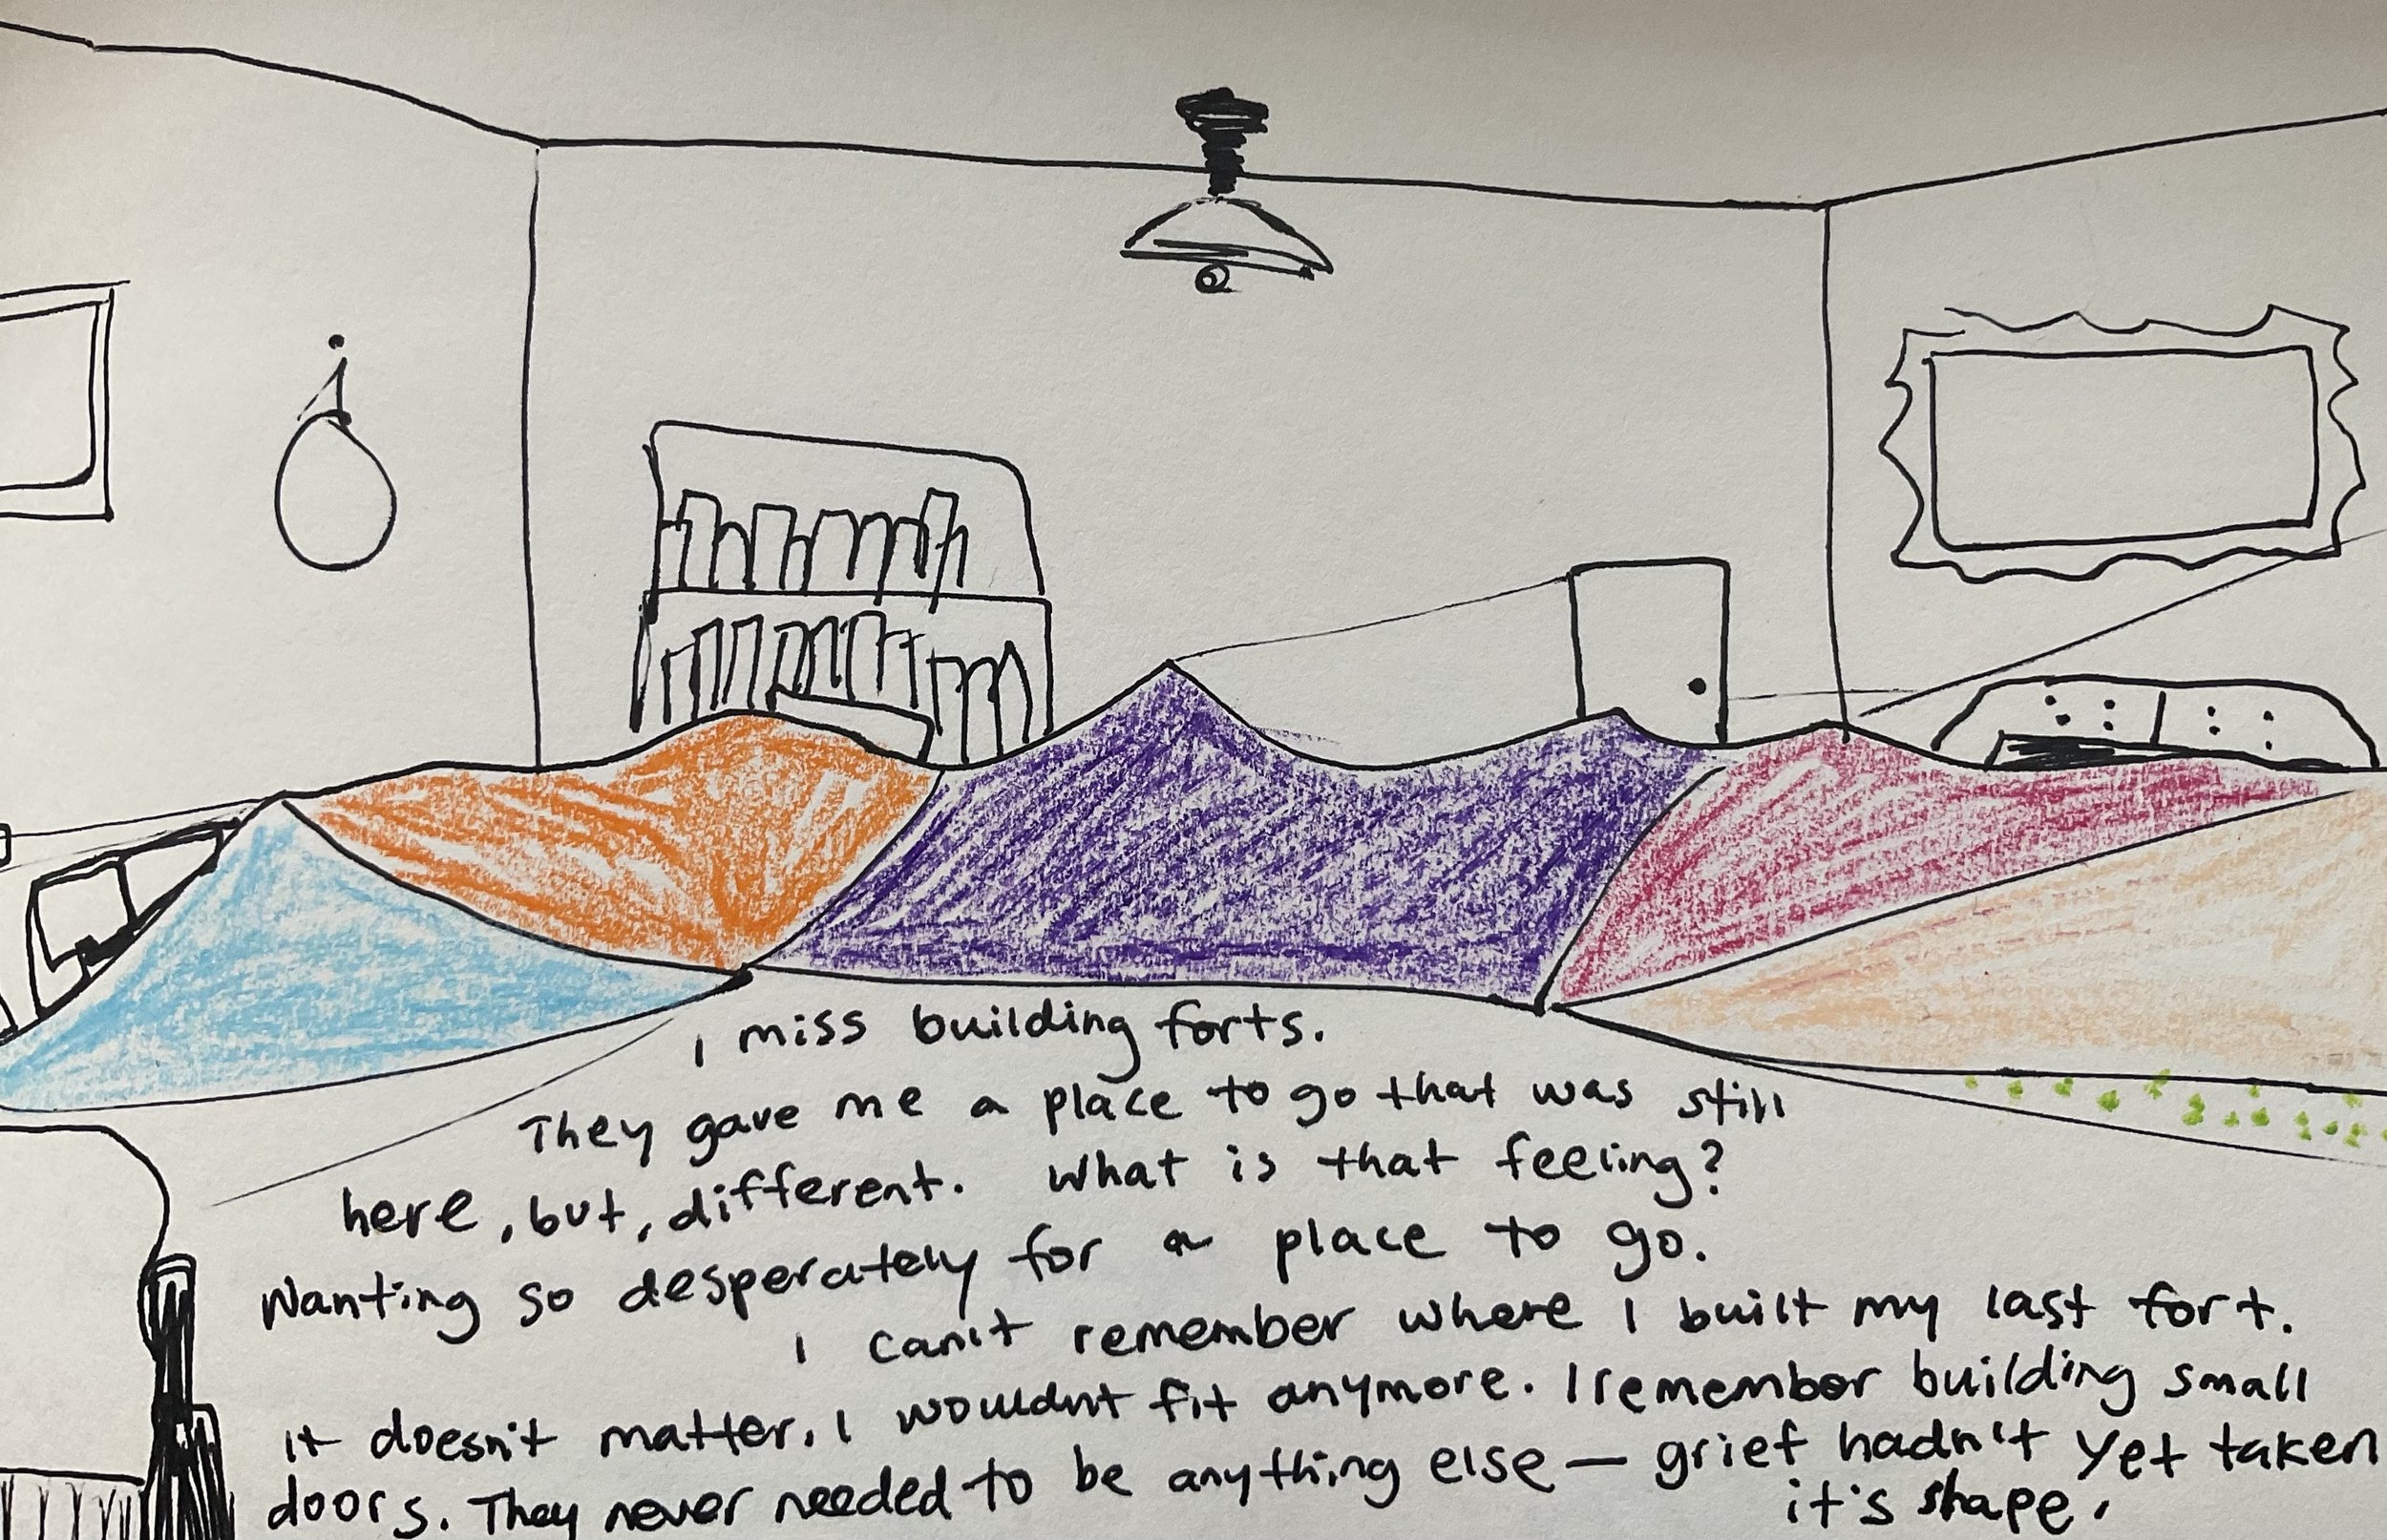 I miss building forts.
They gave me a place to go that was still
here, but, different. What is that feeling?
Wanting so desperately for a place to go.
I can't remember where I built my last fort.
It doesn't matter. I wouldn't fit anymore. I remember building small
doors. They never needed to be anything else — grief hadn't yet taken
it's shape.